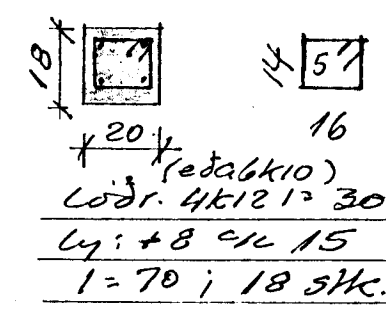 18
20
14
5
16
(eða 6K10)
Lóðr. 4K12 l= 30
Ly: +8 c/c 15
l = 70 ; 18 stk.